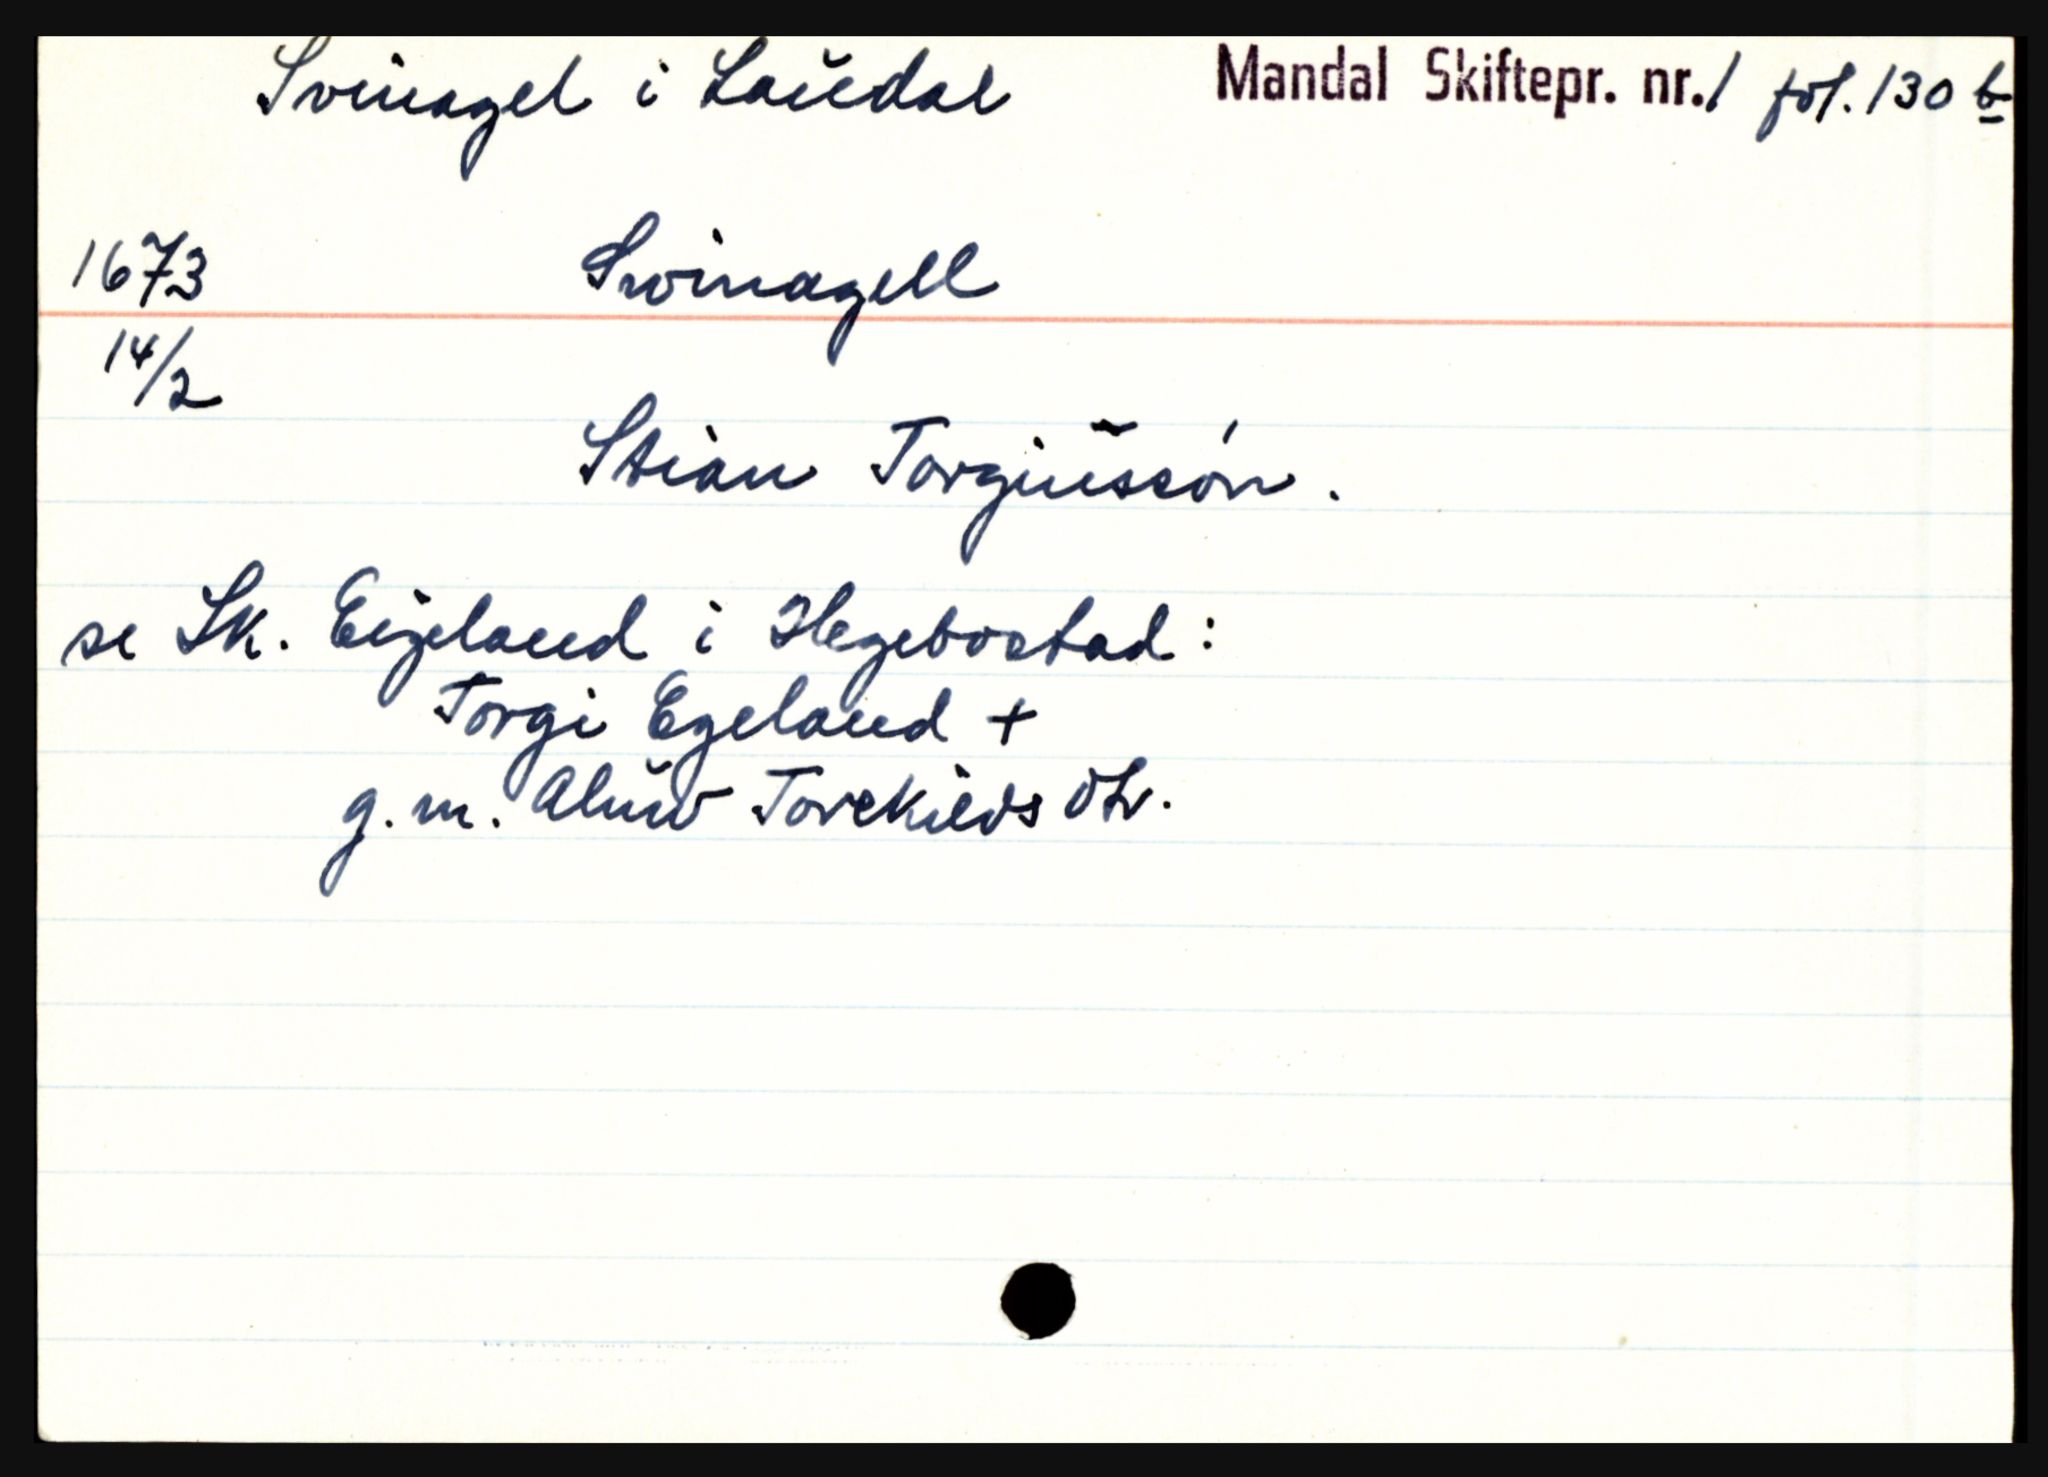 Svinagel i Laudal Mandal Skiftepr. nr. 1 fol. 130 b
1673 Svinagell
14/2
Stian Torgiussón.
se Sk. Eigeland i Hegebostad:
Torgi Egeland +
g.m. Aluw Torekilds dtr.